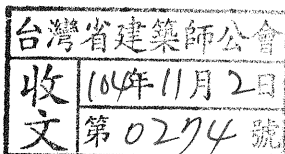 台灣省建築師公會
收文
104年11月2日
第0274號